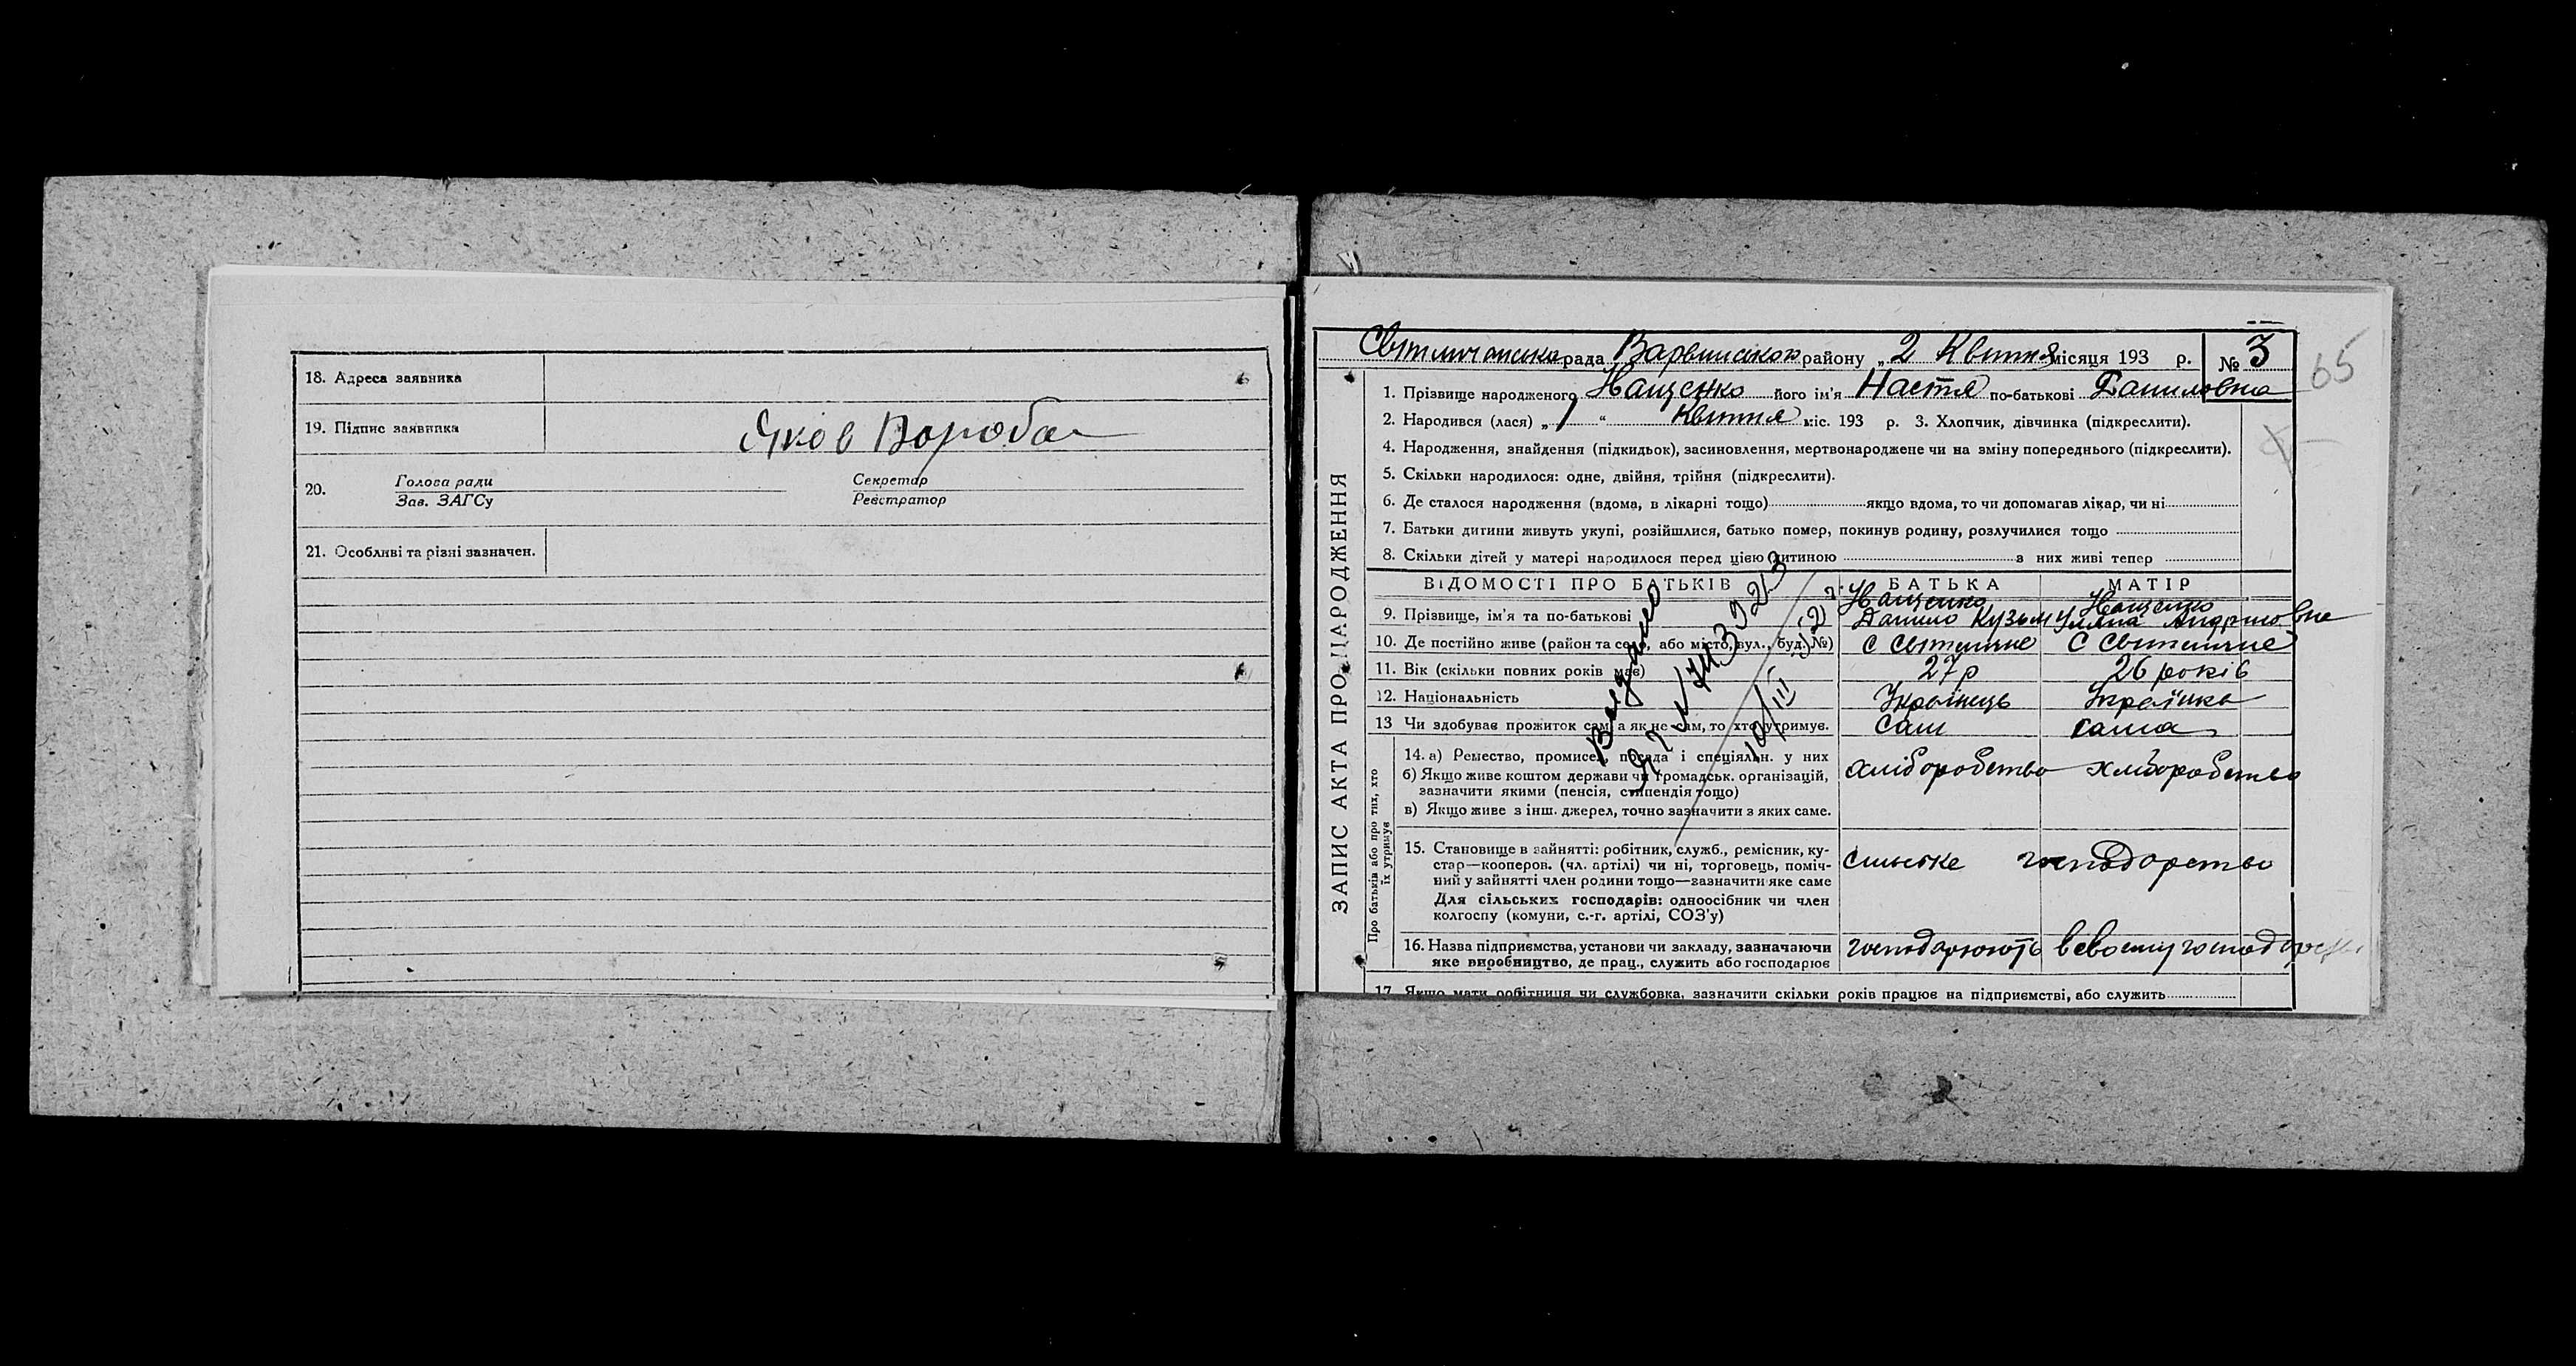 18. Адреса заявника
19. Підпис заявника Яков Вороба
20. Голова ради Секретар
Зав. ЗАГСу Реєстратор
21. Особливі та різні зазначен.
65
Світличанська рада Варвинського району „2 Квітня місяця 193 р. № 3
ЗАПИС АКТА ПРО НАРОДЖЕННЯ
1. Прізвище народженого Нащенко його ім'я Настя по-батькові Даниловна
2. Народився (лася) „1“ Квітня міс. 193 р. 3. Хлопчик, дівчинка (підкреслити).
4. Народження, знайдення (підкидьок), засиновлення, мертвонароджене чи на зміну попереднього (підкреслити).
5. Скільки народилося: одне, двійня, трійня (підкреслити).
6. Де сталося народження (вдома, в лікарні тощо) якщо вдома, то чи допомагав лікар, чи ні
7. Батьки дитини живуть укупі, розійшлися, батько помер, покинув родину, розлучилися тощо
8. Скільки дітей у матері народилося перед цією дитиною з них живі тепер
ВІДОМОСТІ ПРО БАТЬКІВ БАТЬКА МАТІР
Нащенко Нащенко
9. Прізвище, ім'я та по-батькові Данило Кузьм Уляна Андриовна
10. Де постійно живе (район та село, або місто, вул., буд. №) с Світличне С Світличне
11. Вік (скільки повних років має) 27р 26 років
12. Національність Українець Українка
13 Чи здобуває прожиток сам, а як не сам, то хто утримує. Сам сама
Про батьків або про тих, хто
їх утримує
14. а) Ремество, промисел, посада і спеціяльн. у них
б) Якщо живе коштом держави чи громадськ. організацій, хліборобство хліборобство
зазначити якими (пенсія, стипендія тощо)
в) Якщо живе з інш. джерел, точно зазначити з яких саме.
15. Становище в зайнятті: робітник, служб., ремісник, ку-
стар—кооперов. (чл. артілі) чи ні, торговець, поміч- сильске господарство
ний у зайнятті член родини тощо—зазначити яке саме
Для сільських господарів: одноосібник чи член
колгоспу (комуни, с.-г. артілі, СОЗ'у)
16. Назва підприємства, установи чи закладу, зазначаючи господарюють в своєму
яке виробництво, де прац., служить або господарює
17. Якщо мати робітниця чи службовка, зазначити скільки років працює на підприємстві, або служить